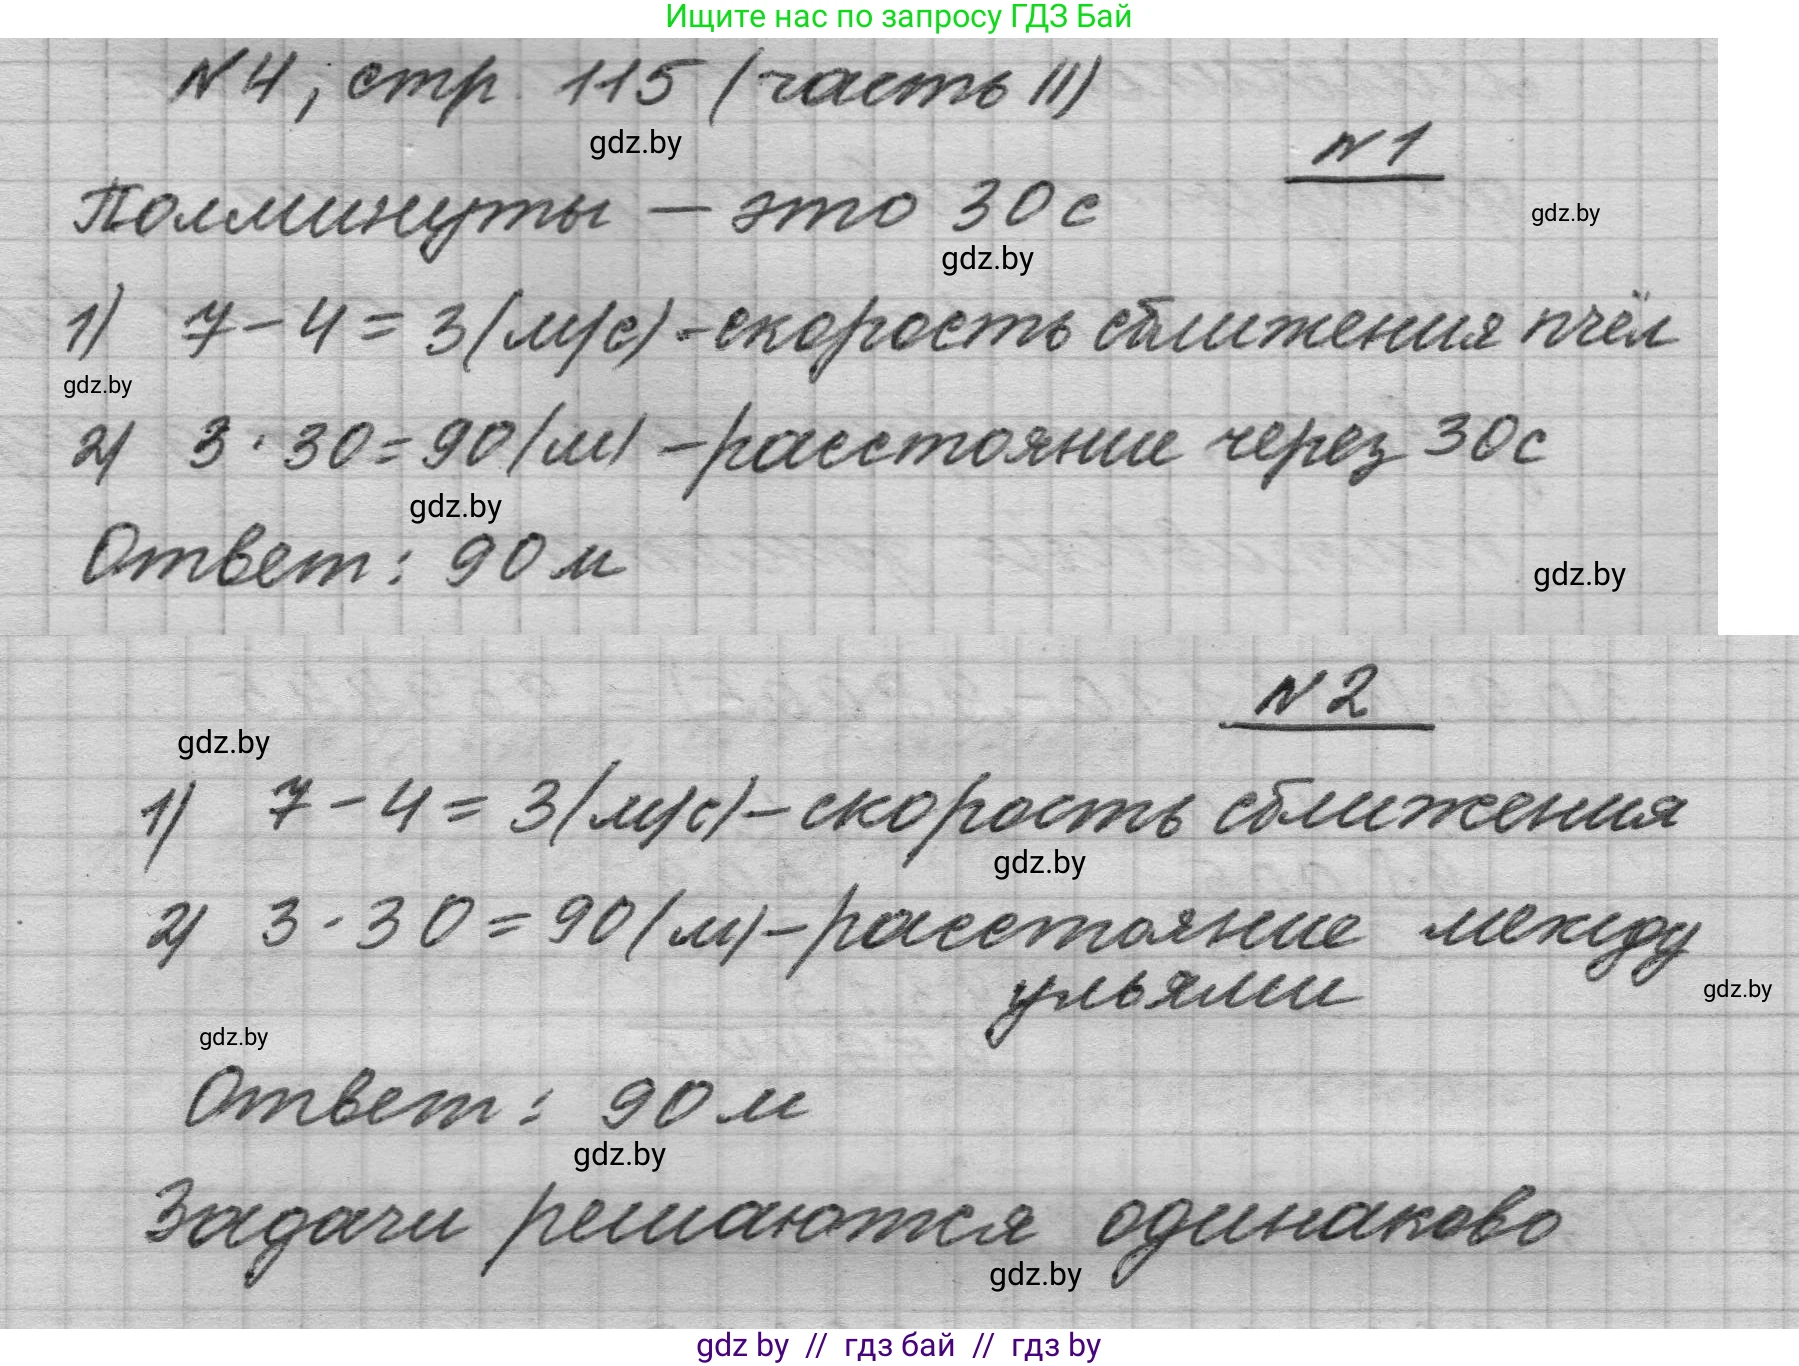 Ищите нас по запросу ГДЗ Бай
№4, стр. 115 (часть II)
gdz.by
№1
Полминуты – это 30 с
gdz.by
gdz.by
1) 7 – 4 = 3 (м/с) – скорость сближения пчёл
gdz.by
2) 3 · 30 = 90 (м) – расстояние через 30 с
gdz.by
Ответ: 90 м
gdz.by
№2
gdz.by
1) 7 – 4 = 3 (м/с) – скорость сближения
gdz.by
2) 3 · 30 = 90 (м) – расстояние между
ульями
gdz.by
gdz.by
Ответ: 90 м
gdz.by
Задачи решаются одинаково
gdz.by
gdz by // гдз бай // гдз by